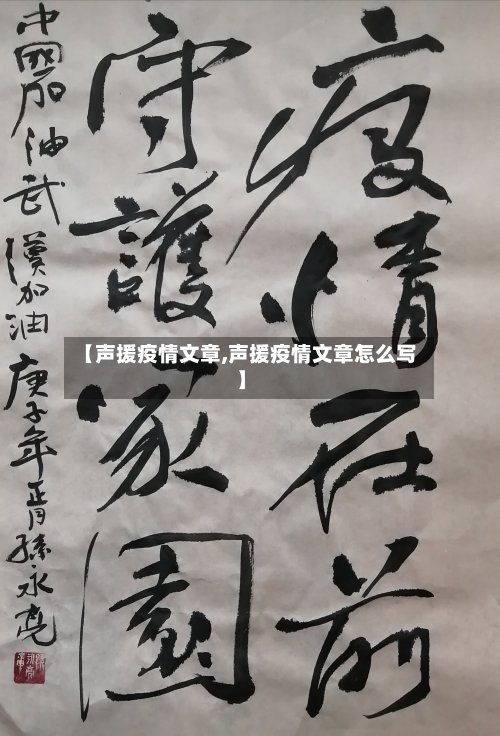 疫情在前
守護家園
中國加油武漢加油庚子年正月孫永亮
【声援疫情文章,声援疫情文章怎么写
】